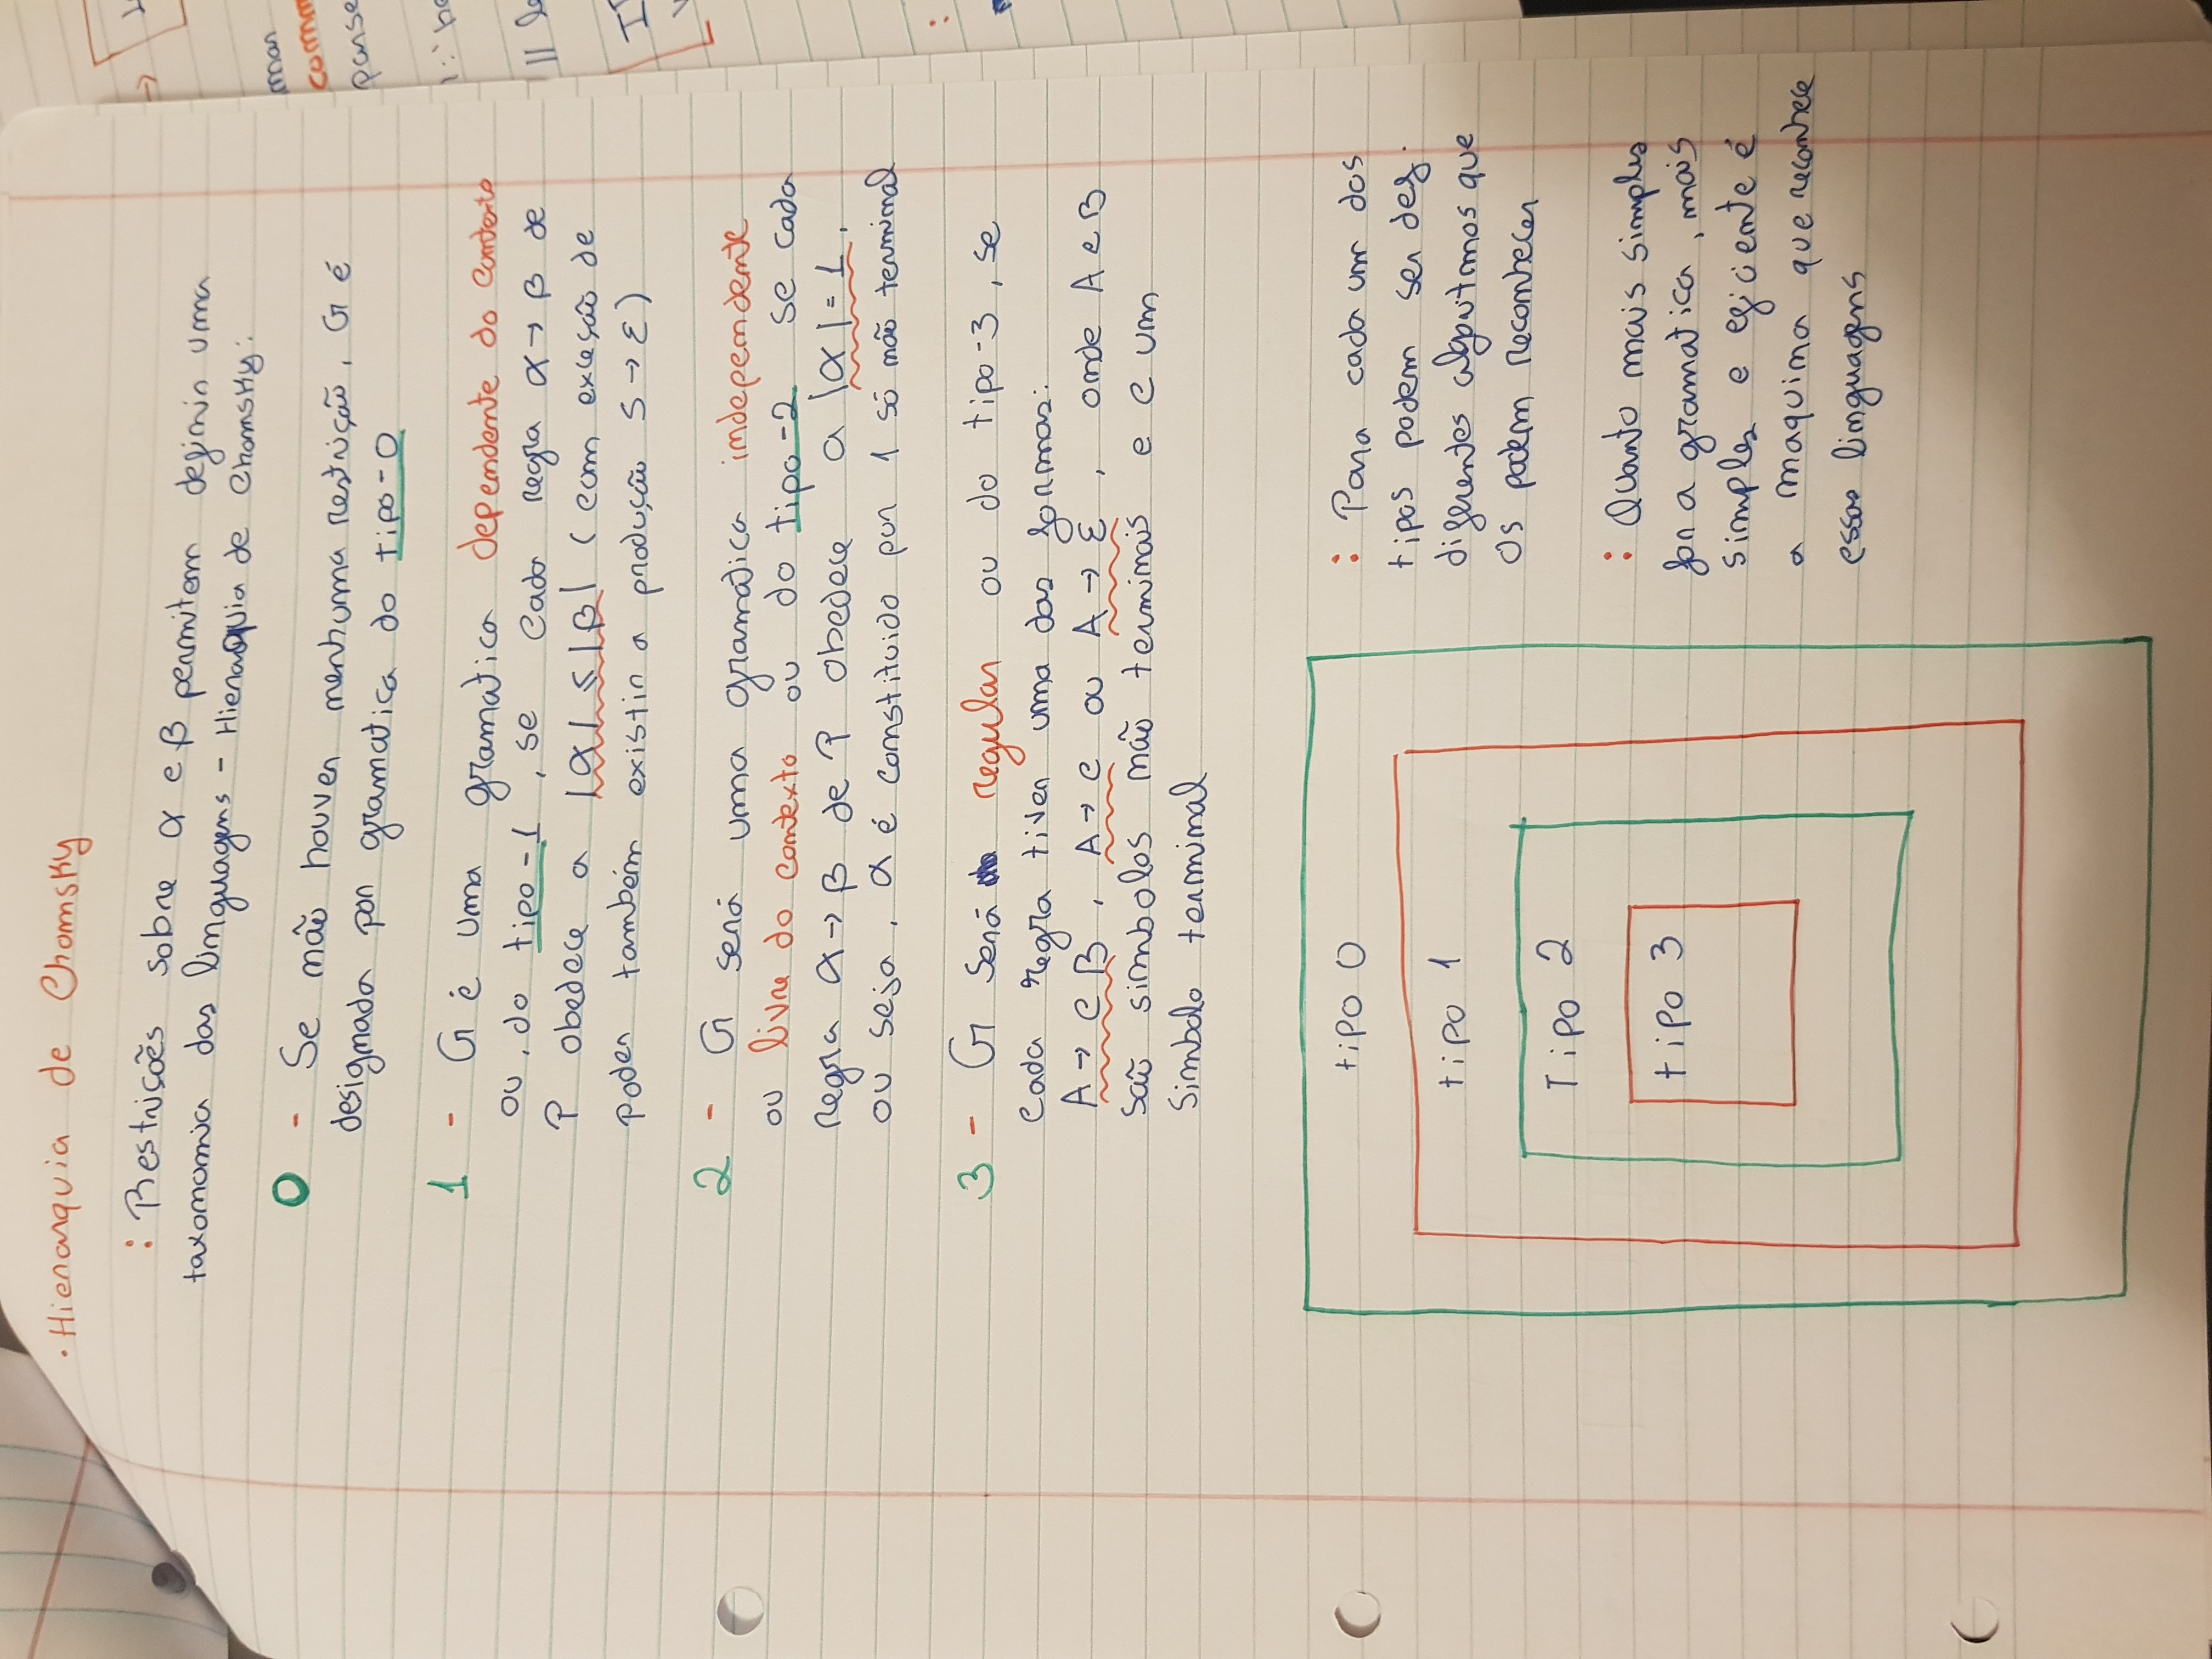 · Hierarquia de Chomsky
: Restrições sobre α e β permitem definir uma
taxonomia das linguagens - Hierarquia de Chomsky:
0 - Se não houver nenhuma restrição, G é
designada por gramatica do tipo-0
1 - G é uma gramatica dependente do contexto
ou, do tipo-1, se cada regra α → β de
P obedece a |α| ≤ |β| (com exceção de
poder também existir a produção S → ε)
2 - G será uma gramatica independente
ou livre do contexto ou do tipo-2 se cada
regra α → β de P obedece a |α| = 1,
ou seja, α é constituido por 1 só não terminal
3 - G será regular ou do tipo-3, se
cada regra tiver uma das formas:
A → c B, A → c ou A → ε, onde A e B
são simbolos não terminais e c um
simbolo terminal
tipo 0
tipo 1
Tipo 2
tipo 3
: Para cada um dos
tipos podem ser def.
diferentes algoritmos que
os podem reconhecer
: Quanto mais simples
for a gramatica, mais
simples e eficiente é
a maquina que reconhece
essas linguagens
man
parse